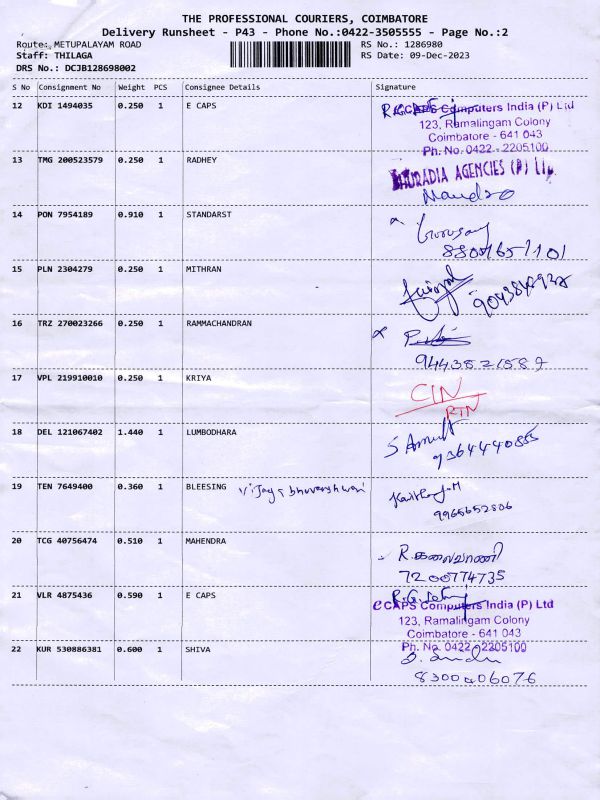 THE PROFESSIONAL COURIERS, COIMBATORE
Delivery Runsheet - P43 - Phone No.:0422-3505555 - Page No.:2
Route: METUPALAYAM ROAD RS No.: 1286980
Staff: THILAGA RS Date: 09-Dec-2023
DRS No.: DCJB128698002
S No Consignment No Weight PCS Consignee Details Signature
12 KDI 1494035 0.250 1 E CAPS
eCAPS Computers India (P) Ltd
123, Ramalingam Colony
Coimbatore - 641 043
Ph. No. 0422 - 2205100
13 TMG 200523579 0.250 1 RADHEY
AGENCIES (P)
14 PON 7954189 0.910 1 STANDARST
15 PLN 2304279 0.250 1 MITHRAN
16 TRZ 270023266 0.250 1 RAMMACHANDRAN
17 VPL 219910010 0.250 1 KRIYA
RTN
18 DEL 121067402 1.440 1 LUMBODHARA
19 TEN 7649400 0.360 1 BLEESING
9965652806
20 TCG 40756474 0.510 1 MAHENDRA
7200774735
21 VLR 4875436 0.590 1 E CAPS
eCAPS Computers India (P) Ltd
123, Ramalingam Colony
Coimbatore - 641 043
Ph. No. 0422 - 2205100
22 KUR 530886381 0.600 1 SHIVA
8300406076